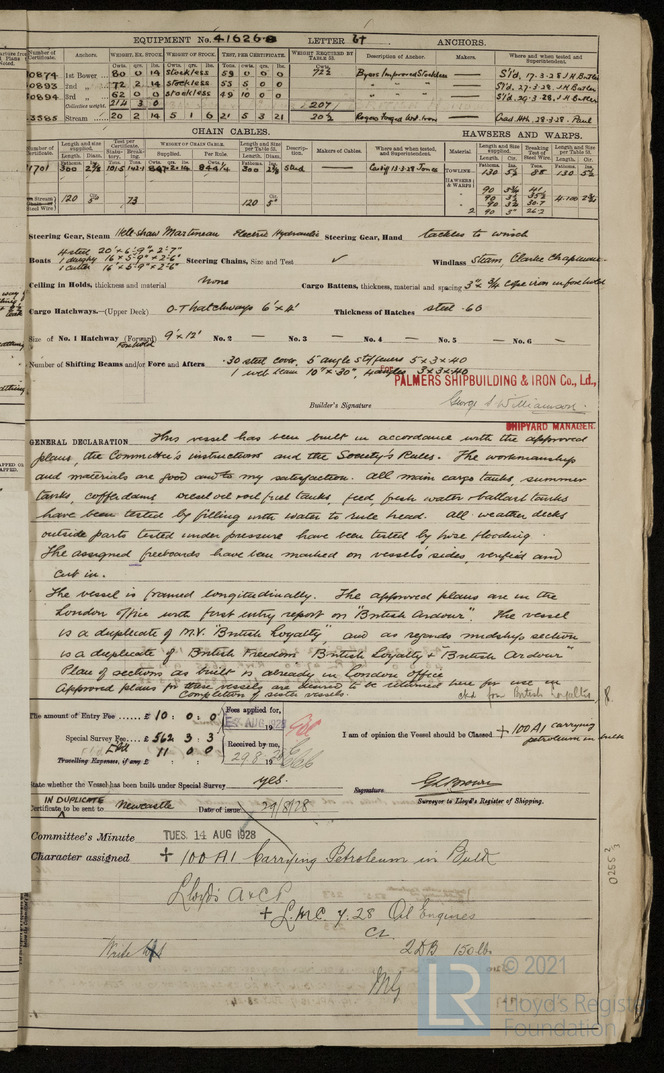 EQUIPMENT No. 41626 LETTER bt ANCHORS.
Number of Certificate. Anchors. WEIGHT, EX. STOCK. WEIGHT OF STOCK. TEST, PER CERTIFICATE. WEIGHT REQUIRED BY TABLE 53. Description of Anchor. Makers. Where and when tested and Superintendent.
Cwts. qrs. lbs.
10874 1st Bower 80 0 14 Stockless 59 0 0 0 72½ Byers Improved Stockless — Sl'd, 17.3.28, J.H. Butler
10893 2nd 72 2 14 stockless 55 5 0 0 — Sl'd. 27.3.28. J.H. Butler
10894 3rd 62 0 0 stockless 49 10 0 0 — Sl'd. 29.3.28. J.H. Butler
Collective weight. 214 3 0 207
3585 Stream 20 2 14 5 1 6 21 5 3 21 20½ Rogers Forged Wrt Iron — Crad. Hth. 28.3.28. Paul
CHAIN CABLES. HAWSERS AND WARPS.
Number of Certificate. Length and size supplied. Test per Certificate. WEIGHT OF CHAIN CABLE. Length and size per Table 53. Description. Makers of Cables. Where and when tested, and Superintendent. Material Length and size supplied. Breaking Test of Steel Wire. Length and size per Table 53.
Length. Diam. Statutory. Breaking. Supplied. Per Rule. Length. Diam. Length. Cir. Length. Cir.
1701 300 101.5 142.1 300 Stud — TOWLINE 130 5½ 85 130 5½
HAWSERS & WARPS 90 3¾ 41
Stream Steel Wire 120 73 120 5"
2 90 3" 26.2
Steering Gear, Steam Hele Shaw Martineau Electric Hydraulic Steering Gear, Hand tackles to winch
Boats 4 steel 20' × 6'-9" × 2'-7"
1 dinghy 16' × 5'-9" × 2'-6"
1 cutter 16' × 5'-9" × 2'-6" Steering Chains, Size and Test ✓ Windlass Steam, Clarke Chapman
Ceiling in Holds, thickness and material None Cargo Battens, thickness, material and spacing 3" × ¾" cope iron in forehold
Cargo Hatchways.—(Upper Deck) O.T hatchways 6' × 4' Thickness of Hatches steel .60
Size of No. 1 Hatchway (Forward) Forehold 9' × 12' No. 2 — No. 3 — No. 4 — No. 5 — No. 6 —
Number of Shifting Beams and/or Fore and Afters .30 steel cover, 5 angle stiffeners 5 × 3 × .40
1 web beam 10" × .30", 4 angles 3 × 3 × .40
FOR PALMERS SHIPBUILDING & IRON Co., Ld.,
Builder's Signature George S Williamson.
SHIPYARD MANAGER.
GENERAL DECLARATION This vessel has been built in accordance with the approved
plans, the Committee's instructions and the Society's Rules. The workmanship
and materials are good and to my satisfaction. All main cargo tanks, summer
tanks, cofferdams, diesel oil fuel tanks, feed, fresh water & ballast tanks
have been tested by filling with water to rule head. All weather decks
outside parts tested under pressure have been tested by hose flooding.
The assigned freeboards have been marked on vessel's sides, verified and
cut in.
The vessel is framed longitudinally. The approved plans are in the
London office with first entry report on "British Ardour". The vessel
is a duplicate of M.V. "British Loyalty", and as regards midship section
is a duplicate of British Freedom "British Loyalty" & "British Ardour"
Plan of sections as built is already in London Office
Approved plans for these vessels are desired to be returned here for use in
Completion of sister vessels. ckd for British Loyalty
The amount of Entry Fee ...... £ 10 : 0 : 0 Fees applied for,
AUG 1928
Special Survey Fee ..... £ 562 3 3 Received by me,
11 0 0 29.8.1928
Travelling Expenses, if any £
I am of opinion the Vessel should be Classed + 100 A1 carrying
petroleum in bulk
State whether the Vessel has been built under Special Survey yes. Signature GL Brown
Surveyor to Lloyd's Register of Shipping.
IN DUPLICATE
Certificate to be sent to Newcastle Date of issue 29/8/28
Committee's Minute TUES. 14 AUG 1928
Character assigned + 100 A1 Carrying Petroleum in Bulk
Lloyd's A & CP
+ L.M.C. 7.28 Oil Engines
CL
Write 2 DB 150 lb.
0255 2/3
LR © 2021
Lloyd's Register
Foundation